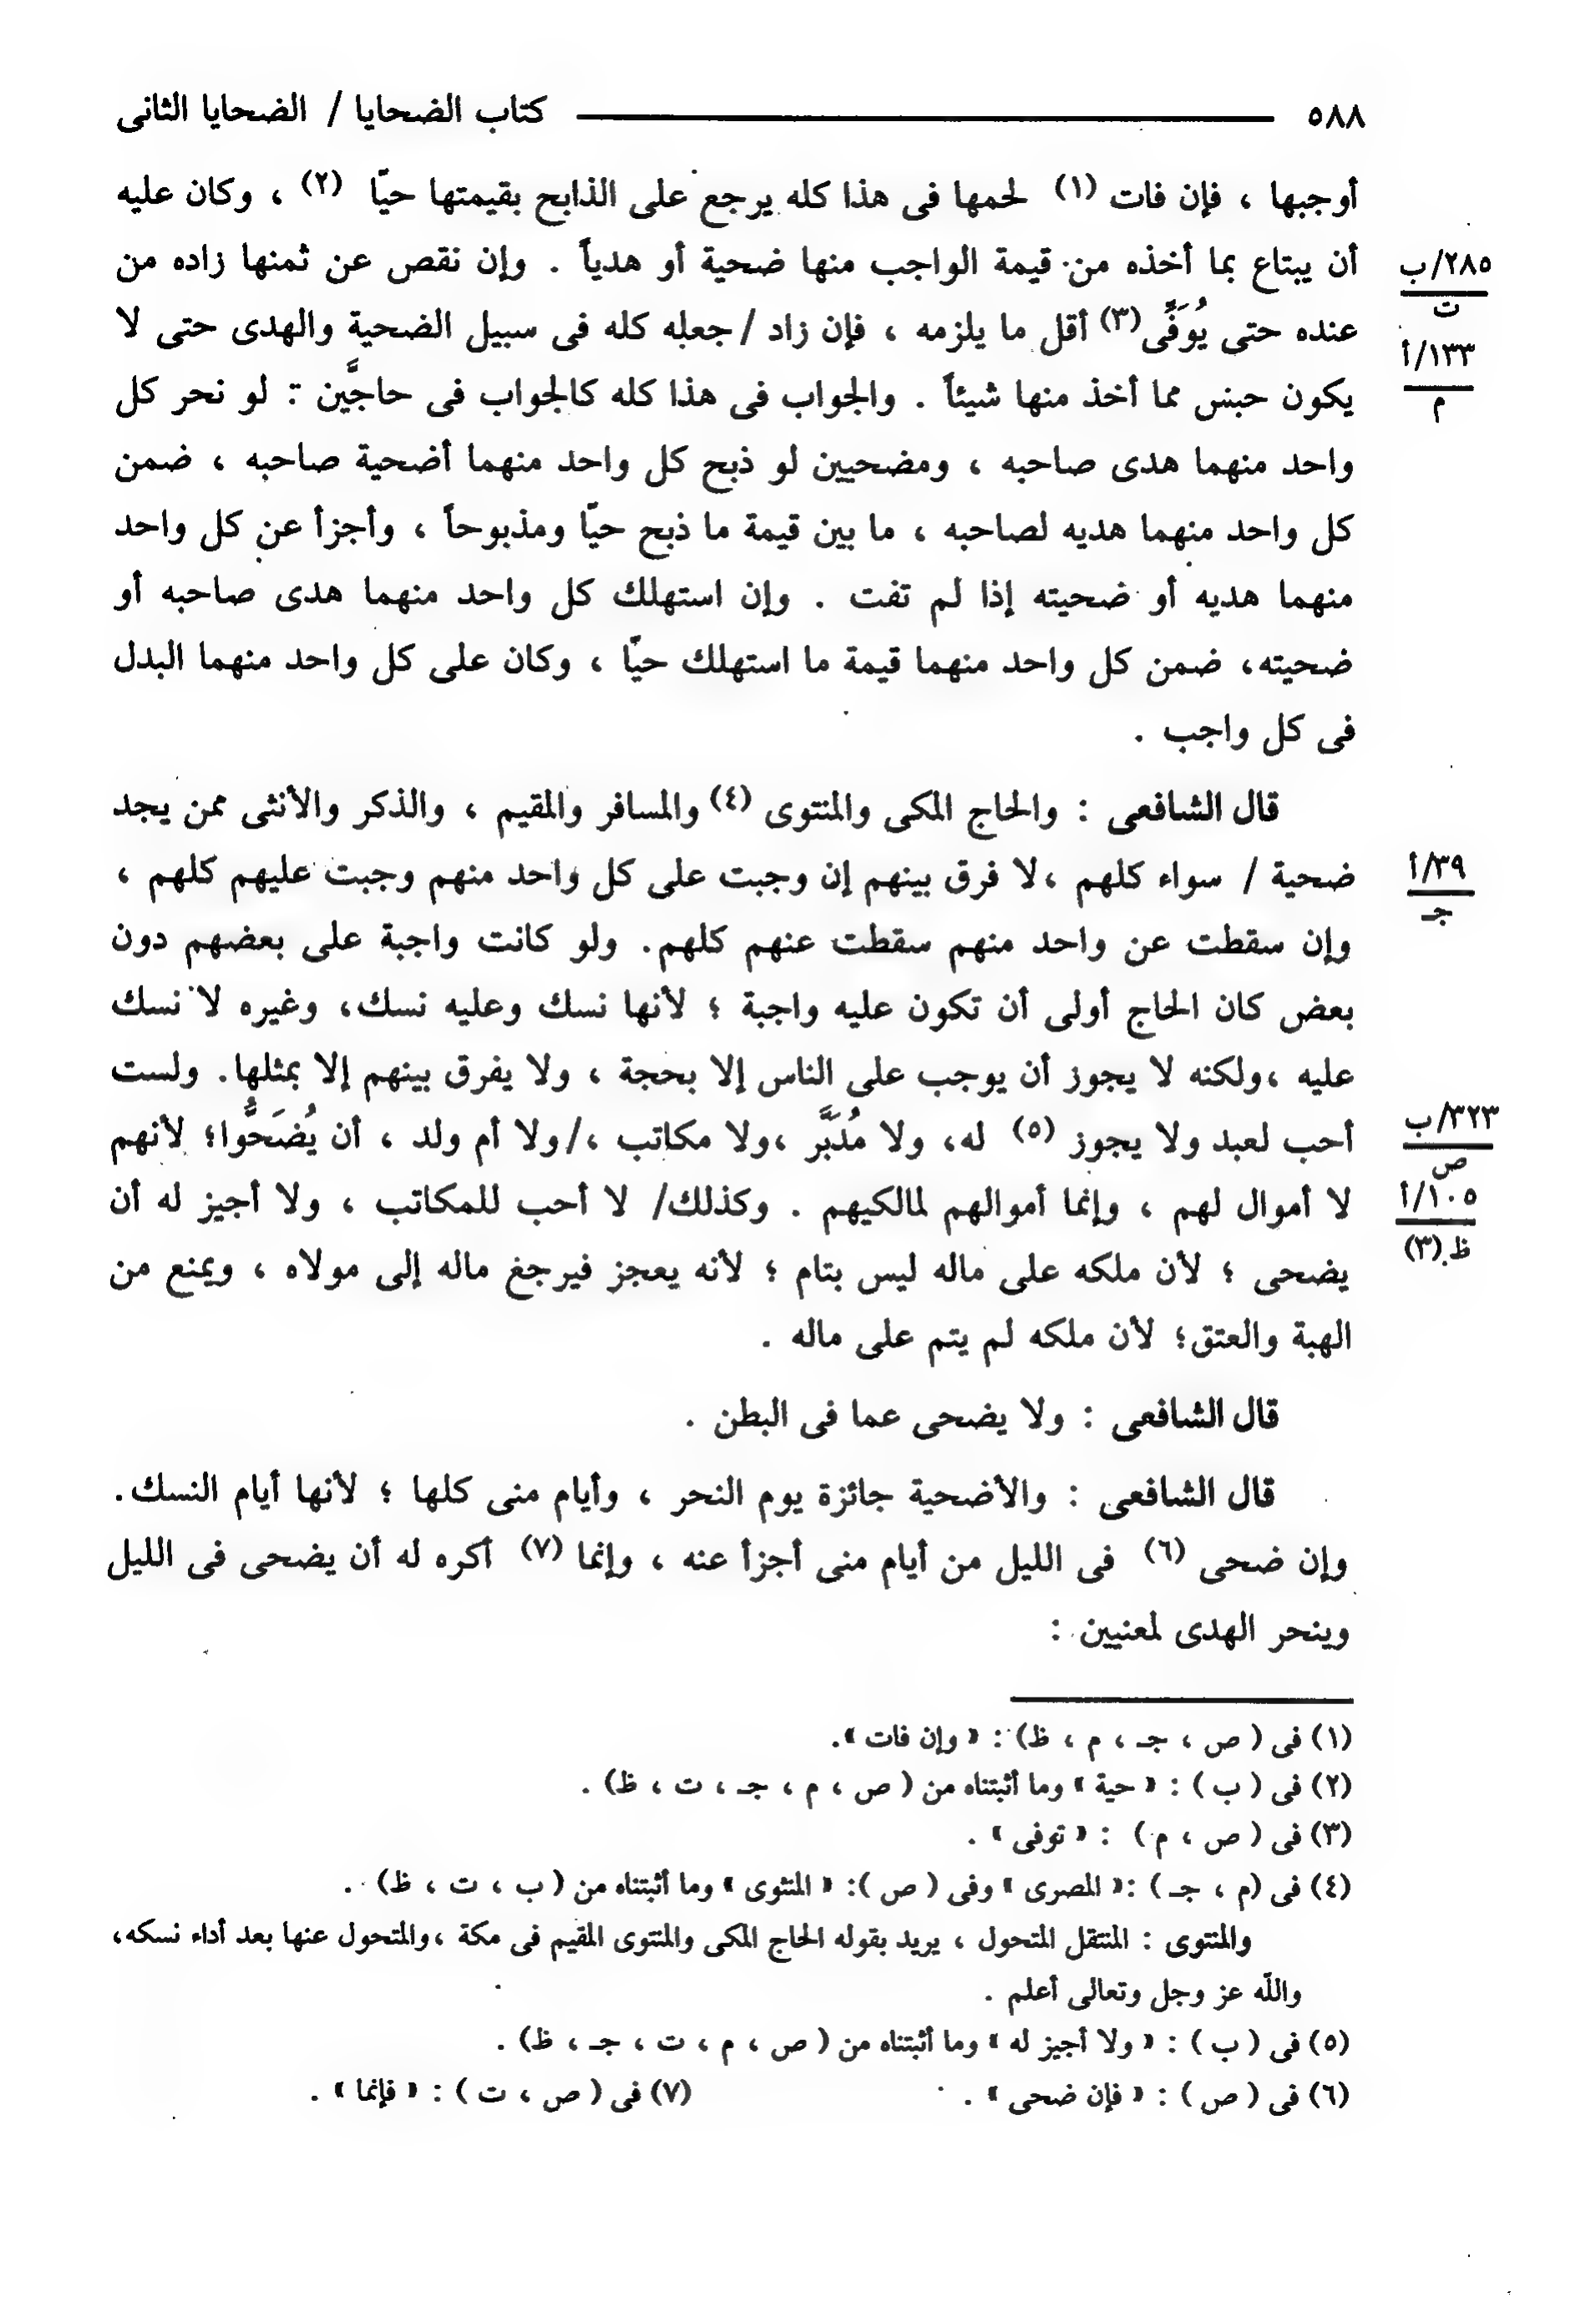 ٥٨٨ كتاب الضحايا / الضحايا الثانى
أوجبها ، فإن فات (١) لحمها فى هذا كله يرجع على الذابح بقيمتها حيّا (٢) ، وكان عليه
أن يبتاع بما أخذه من قيمة الواجب منها ضحية أو هدياً . وإن نقص عن ثمنها زاده من
٢٨٥/ب
ت
عنده حتى يُوَفَّى (٣) أقل ما يلزمه ، فإن زاد / جعله كله فى سبيل الضحية والهدى حتى لا
١٣٣/أ
م
يكون حبس مما أخذ منها شيئاً . والجواب فى هذا كله كالجواب فى حاجَّين : لو نحر كل
واحد منهما هدى صاحبه ، ومضحيين لو ذبح كل واحد منهما أضحية صاحبه ، ضمن
كل واحد منهما هديه لصاحبه ، ما بين قيمة ما ذبح حيّا ومذبوحاً ، وأجزأ عن كل واحد
منهما هديه أو ضحيته إذا لم تفت . وإن استهلك كل واحد منهما هدى صاحبه أو
ضحيته، ضمن كل واحد منهما قيمة ما استهلك حيّا ، وكان على كل واحد منهما البدل
فى كل واجب .
قال الشافعى : والحاج المكى والمنتوى (٤) والمسافر والمقيم ، والذكر والأنثى ممن يجد
ضحية / سواء كلهم ،لا فرق بينهم إن وجبت على كل واحد منهم وجبت عليهم كلهم ،
٣٩/أ
جـ
وإن سقطت عن واحد منهم سقطت عنهم كلهم. ولو كانت واجبة على بعضهم دون
بعض كان الحاج أولى أن تكون عليه واجبة ؛ لأنها نسك وعليه نسك، وغيره لا نسك
عليه ،ولكنه لا يجوز أن يوجب على الناس إلا بحجة ، ولا يفرق بينهم إلا بمثلها. ولست
أحب لعبد ولا يجوز (٥) له، ولا مُدَبَّر ،ولا مكاتب ،/ولا أم ولد ، أن يُضَحُّوا؛ لأنهم
٣٢٣/ب
ص
لا أموال لهم ، وإنما أموالهم لمالكيهم . وكذلك/ لا أحب للمكاتب ، ولا أجيز له أن
١٠٥/أ
ظ(٣)
يضحى ؛ لأن ملكه على ماله ليس بتام ؛ لأنه يعجز فيرجع ماله إلى مولاه ، ويمنع من
الهبة والعتق؛ لأن ملكه لم يتم على ماله .
قال الشافعى : ولا يضحى عما فى البطن .
قال الشافعى : والأضحية جائزة يوم النحر ، وأيام منى كلها ؛ لأنها أيام النسك.
وإن ضحى (٦) فى الليل من أيام منى أجزأ عنه ، وإنما (٧) أكره له أن يضحى فى الليل
وينحر الهدى لمعنيين :
(١) فى ( ص ، جـ ، م ، ظ) : « وإن فات ».
(٢) فى ( ب ) : « حية » وما أثبتناه من ( ص ، م ، جـ ، ت ، ظ) .
(٣) فى ( ص ، م ) : « توفى » .
(٤) فى (م ، جـ ) :« المصرى » وفى ( ص ): « المنثوى » وما أثبتناه من ( ب ، ت ، ظ) .
والمنتوى : المنتقل المتحول ، يريد بقوله الحاج المكى والمنتوى المقيم فى مكة ،والمتحول عنها بعد أداء نسكه،
واللّه عز وجل وتعالى أعلم .
(٥) فى ( ب ) : « ولا أجيز له » وما أثبتناه من ( ص ، م ، ت ، جـ ، ظ) .
(٦) فى ( ص ) : « فإن ضحى » . (٧) فى ( ص ، ت ) : « فإنما » .